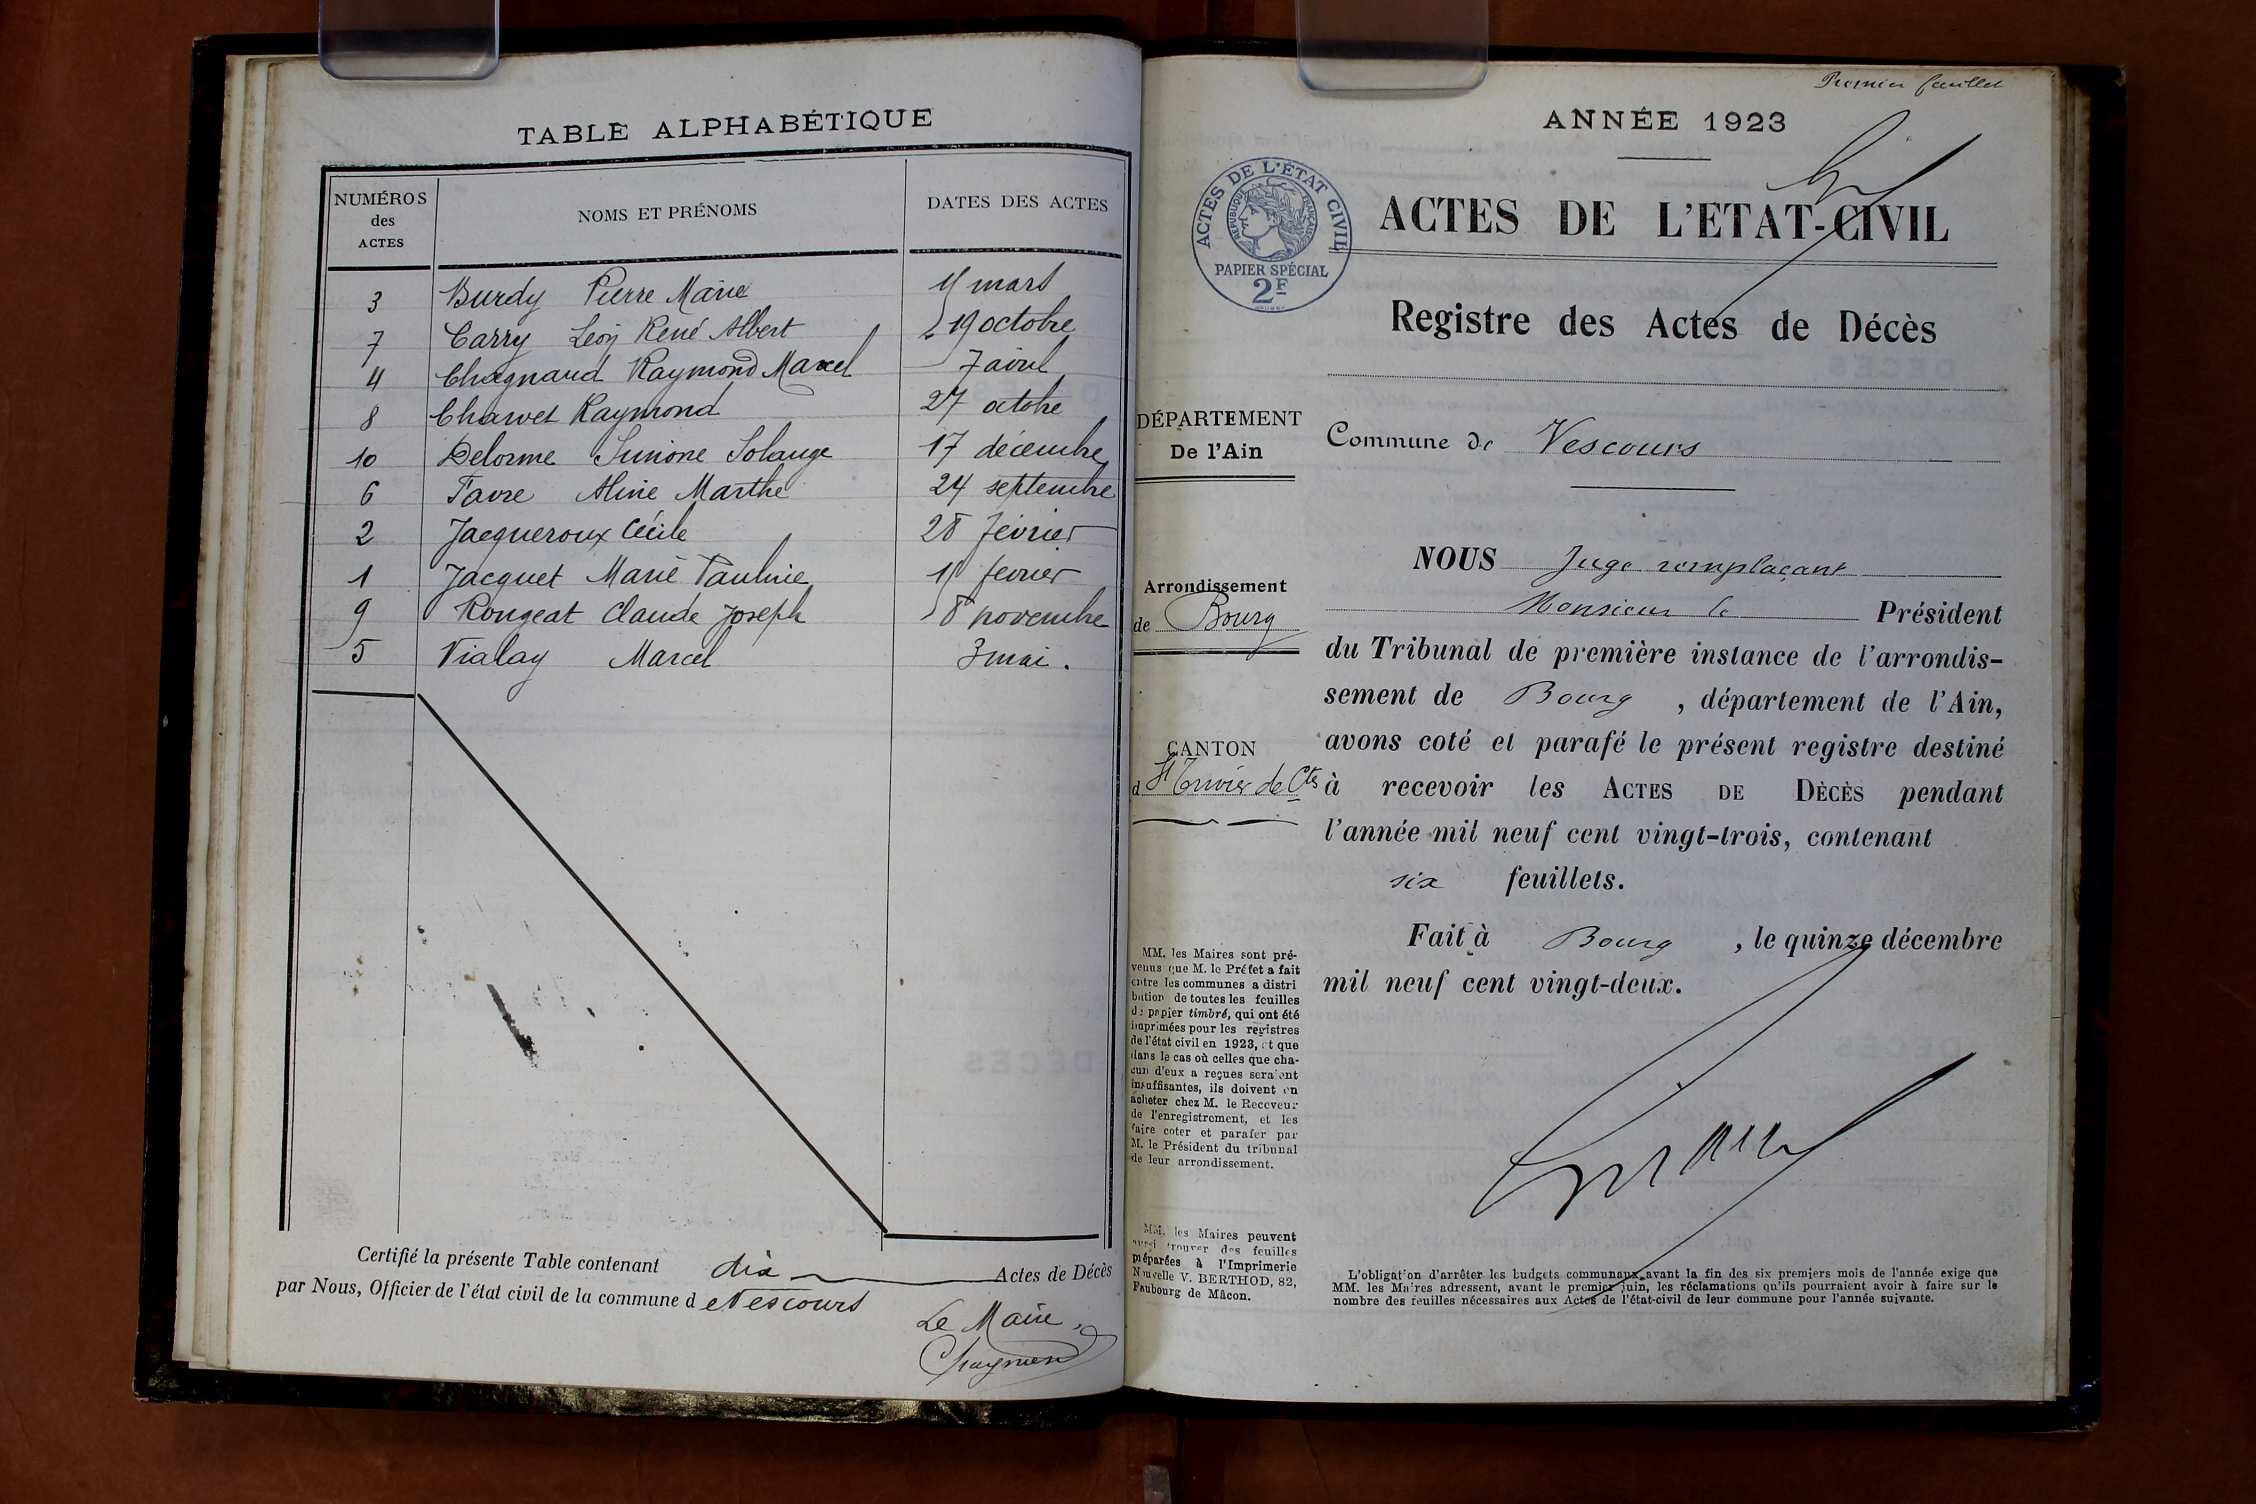 TABLE ALPHABÉTIQUE
NUMÉROS des ACTES NOMS ET PRÉNOMS DATES DES ACTES
3 Burdy Pierre Marie 11 mars
7 Carry Léon René Albert 19 octobre
4 Chagnaud Raymond Marcel 7 avril
8 Charvet Raymond 27 octobre
10 Delorme Simone Solange 17 décembre
6 Favre Aline Marthe 24 septembre
2 Jacqueroux Cécile 28 février
1 Jacquet Marie Pauline février
9 Rongeat Claude Joseph 8 novembre
5 Vialay Marcel 3 mai.
Certifié la présente Table contenant dix Actes de Décès
par Nous, Officier de l'état civil de la commune d e Vescours
Le Maire,
Premier feuillet
ANNÉE 1923
ACTES DE L'ÉTAT CIVIL
RÉPUBLIQUE FRANÇAISE
PAPIER SPÉCIAL
2F
ACTES DE L'ETAT-CIVIL
Registre des Actes de Décès
DÉPARTEMENT
De l'Ain
Commune de Vescours
Arrondissement
de Bourg
CANTON
d St Trivier de Ctes
NOUS Juge remplaçant
Monsieur le Président
du Tribunal de première instance de l'arrondis-
sement de Bourg , département de l'Ain,
avons coté et parafé le présent registre destiné
à recevoir les ACTES DE DÉCÈS pendant
l'année mil neuf cent vingt-trois, contenant
six feuillets.
Fait à Bourg , le quinze décembre
mil neuf cent vingt-deux.
MM. les Maires sont pré-
venus que M. le Préfet a fait
entre les communes a distri
bution de toutes les feuilles
de papier timbré, qui ont été
imprimées pour les registres
de l'état civil en 1923, et que
dans le cas où celles que cha-
cun d'eux a reçues seraient
insuffisantes, ils doivent en
acheter chez M. le Receveur
de l'enregistrement, et les
faire coter et parafer par
M. le Président du tribunal
de leur arrondissement.
MM. les Maires peuvent
aussi trouver des feuilles
préparées à l'Imprimerie
Nouvelle V. BERTHOD, 82,
Faubourg de Mâcon.
L'obligation d'arrêter les budgets communaux avant la fin des six premiers mois de l'année exige que
MM. les Maires adressent, avant le premier juin, les réclamations qu'ils pourraient avoir à faire sur le
nombre des feuilles nécessaires aux Actes de l'état-civil de leur commune pour l'année suivante.